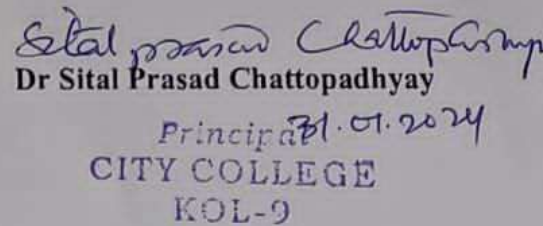 Sital Prasad Chattopadhyay
Dr Sital Prasad Chattopadhyay
Principal 31.01.2024
CITY COLLEGE
KOL-9